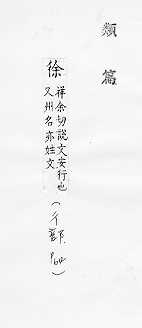 類篇
徐
祥余切說文安行也
又州名亦姓文
(彳部 P64)